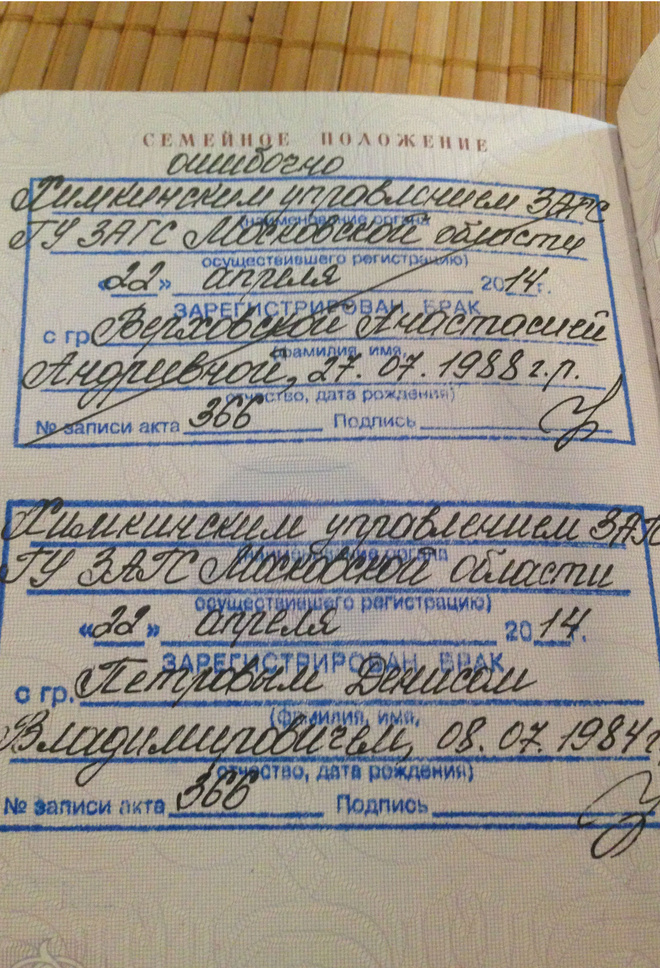 СЕМЕЙНОЕ ПОЛОЖЕНИЕ
ошибочно
Химкинским управлением ЗАГС
(наименование органа
ГУ ЗАГС Московской области
осуществившего регистрацию)
«22» апреля 2014г.
ЗАРЕГИСТРИРОВАН БРАК
с гр. Верховской Анастасией
(фамилия, имя,
Андреевной, 27.07.1988 г.р.
отчество, дата рождения)
№ записи акта 366 Подпись
Химкинским управлением ЗАГС
(наименование органа
ГУ ЗАГС Московской области
осуществившего регистрацию)
«22» апреля 2014.
ЗАРЕГИСТРИРОВАН БРАК
с гр. Петровым Денисом
(фамилия, имя,
Владимировичем, 08.07.1984г.
отчество, дата рождения)
№ записи акта 366 Подпись